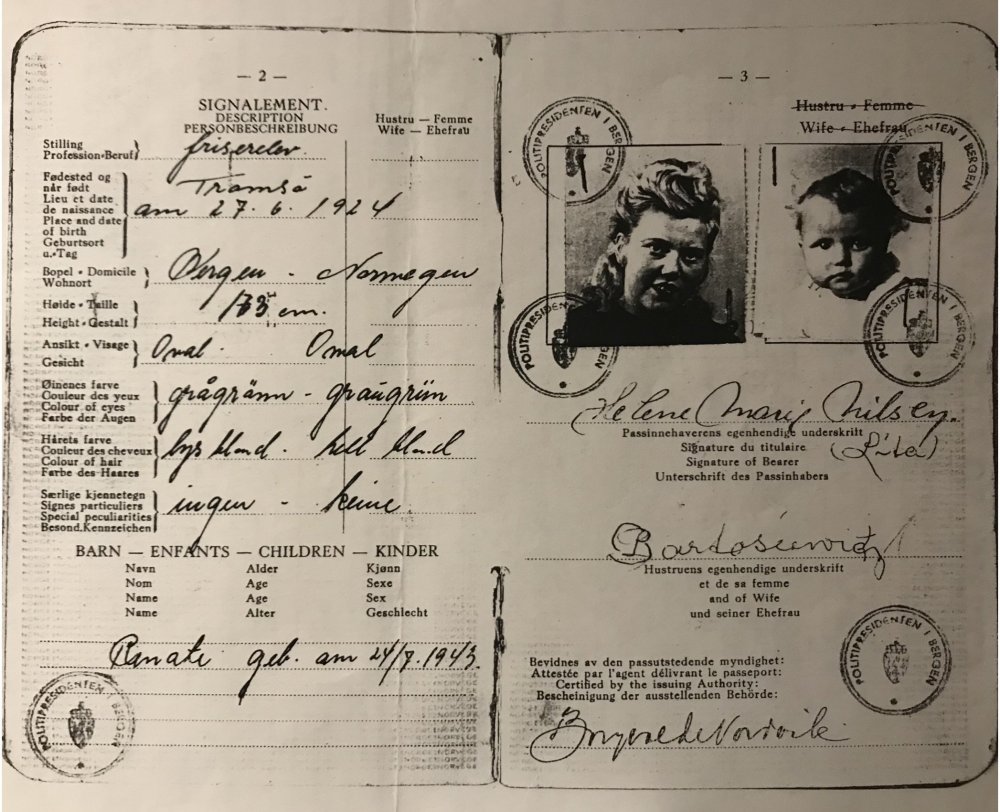 — 2 —
SIGNALEMENT.
DESCRIPTION
PERSONBESCHREIBUNG
Hustru — Femme
Wife — Ehefrau
Stilling
Profession-Beruf
friserelev.
Fødested og
når født
Lieu et date
de naissance
Place and date
of birth
Geburtsort
u.-Tag
Tromsö
am 27. 6. 1924
Bopel - Domicile
Wohnort
Bergen - Norwegen
Høide - Taille
Height - Gestalt
cm.
Ansikt - Visage
Gesicht
Oval. Oval
Øinenes farve
Couleur des yeux
Colour of eyes
Farbe der Augen
grågrønn - graugrün
Hårets farve
Couleur des cheveux
Colour of hair
Farbe des Haares
lys blond - hell blond
Særlige kjennetegn
Signes particuliers
Special peculiarities
Besond. Kennzeichen
ingen - keine
BARN — ENFANTS — CHILDREN — KINDER
Navn Alder Kjønn
Nom Age Sexe
Name Age Sex
Name Alter Geschlecht
Renate geb. am 24/7. 1943
POLITIPRESIDENTEN I BERGEN
— 3 —
Hustru - Femme
Wife - Ehefrau
POLITIPRESIDENTEN I BERGEN
POLITIPRESIDENTEN I BERGEN
POLITIPRESIDENTEN I BERGEN
POLITIPRESIDENTEN I BERGEN
Helene Marie Nilsen.
Passinnehaverens egenhendige underskrift
Signature du titulaire (Rita)
Signature of Bearer
Unterschrift des Passinhabers
Hustruens egenhendige underskrift
et de sa femme
and of Wife
und seiner Ehefrau
POLITIPRESIDENTEN I BERGEN
Bevidnes av den passutstedende myndighet:
Attestée par l'agent délivrant le passeport:
Certified by the issuing Authority:
Bescheinigung der ausstellenden Behörde: